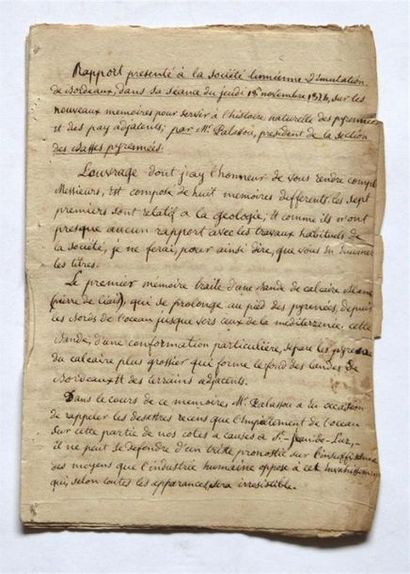 Rapport presenté à la société linnienne d'Emulation
de Bordeaux, dans sa séance du jeudi novembre sur les
nouveaux memoires pour servir à l'histoire naturelle des pyrennées
et des pay adjatents; par Mr. Palassou, president de la section
des Basses pyrennées.
L'ouvrage dont j'ay l'honneur de vous rendre compte
Messieurs, est composé de huit memoires differents. les sept
premiers sont relatif a la geologie; et comme ils n'ont
presque aucun rapport avec les travaux habituels de
la société, je ne ferai, pour ainsi dire, que vous en
les titres.
Le premier memoire traite d'une bande de calcaire
(pierre de ), qui se prolonge au pied des pyrenées, depuis
les bords de l'ocean jusque vers ceux de la mediterranée. cette
bande, d'une conformation particuliere, separe les
du calcaire plus grossier qui forme le fond des landes de
Bordeaux et des terrains adjacents.
Dans le cours de ce memoires Mr. Palassou a eu occasion
de rappeler les desastres recens que l'Empietement de l'ocean
sur cette partie de nos cotes a causés à St.-Jean-de-Luz,-
il ne peut se defendre d'un triste pronostic sur
des moyens que l'industrie humaine oppose à cet
qui, selon toutes les apparances, sera irresistible.